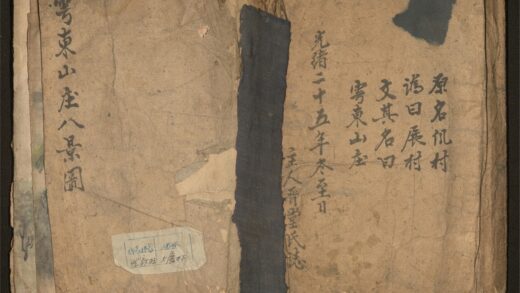 原名村
譌曰展村
文其名曰
雩東山庄
光緒二十五年冬至日
主人氏誌
雩東山庄八景圖